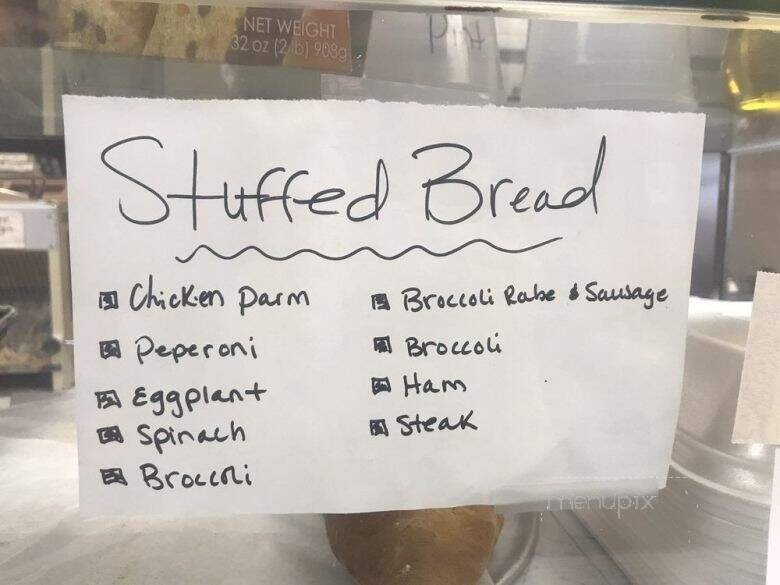 NET WEIGHT
32 oz (2 lb) 908g
Pint
Stuffed Bread
Chicken Parm
Peperoni
Eggplant
Spinach
Broccoli
Broccoli Rabe & Sausage
Broccoli
Ham
Steak
menupix